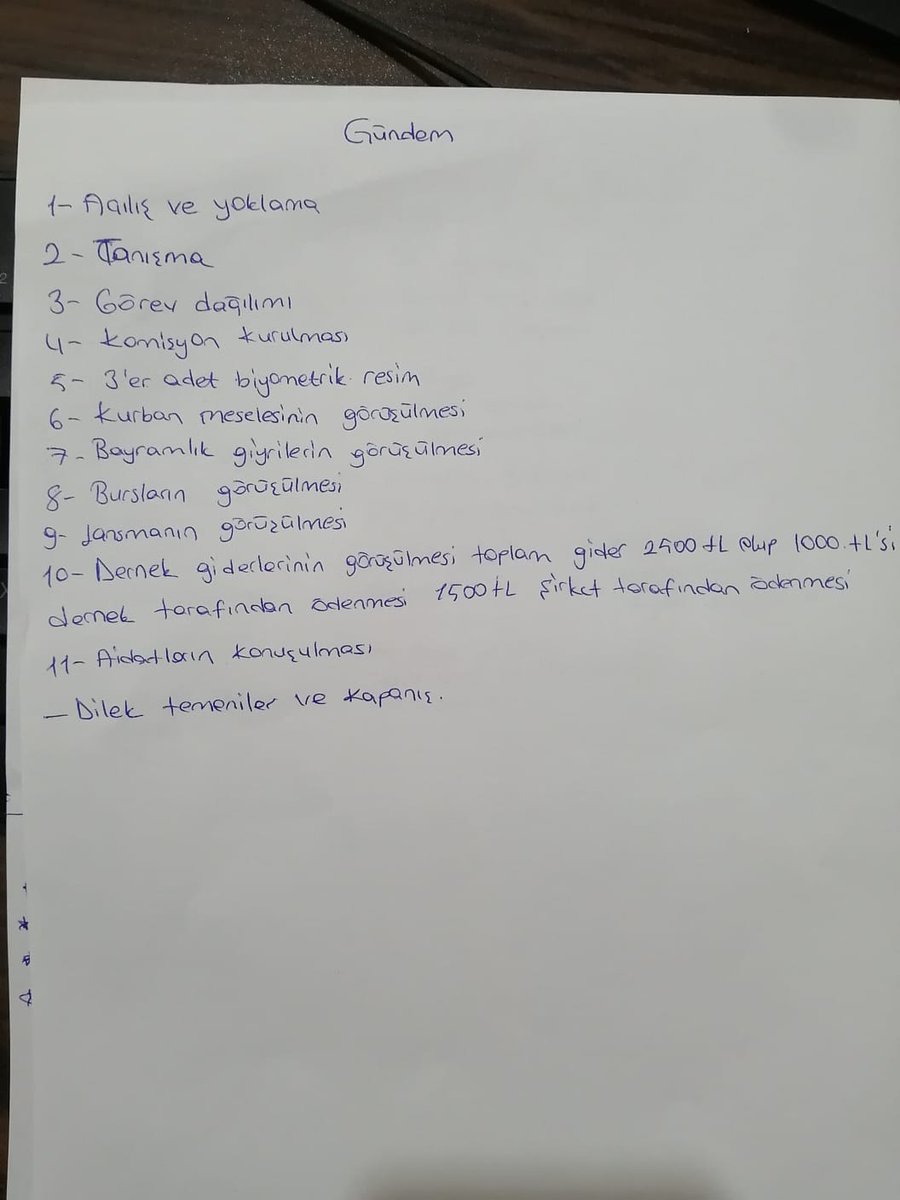 Gündem
1- Açılış ve yoklama
2- Tanışma
3- Görev dağılımı
4- Komisyon kurulması
5- 3'er adet biyometrik resim
6- Kurban meselesinin görüşülmesi
7- Bayramlık giyrilerin görüşülmesi
8- Bursların görüşülmesi
9- Lansmanın görüşülmesi
10- Dernek giderlerinin görüşülmesi toplam gider 2500 TL olup 1000.TL'si
dernek tarafından ödenmesi 1500 TL Şirket tarafından ödenmesi
11- Aidatların konuşulması
- Dilek temeniler ve kapanış.